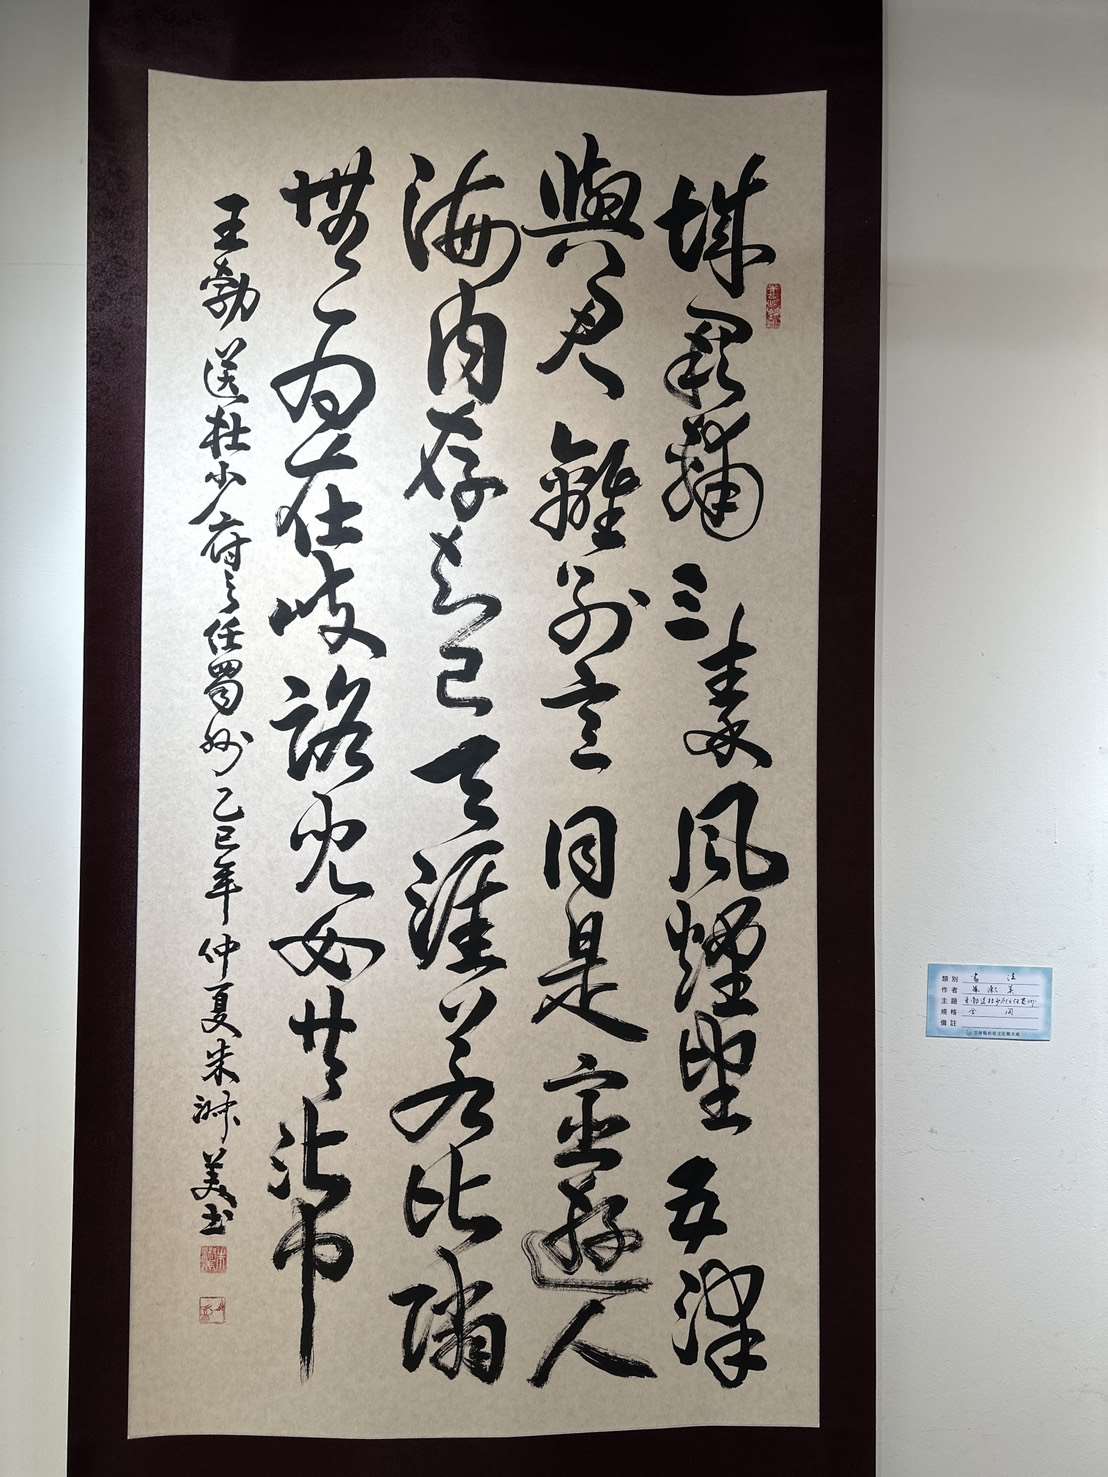 城闕輔三秦風煙望五津
與君離別意同是宦遊人
海内存知己天涯若比鄰
無為在岐路兒女共沾巾
王勃送杜少府之任蜀州乙巳年仲夏朱淑美書
類別 書法
作者 朱淑美
主題 王勃送杜少府之任蜀州
規格 全開
備註